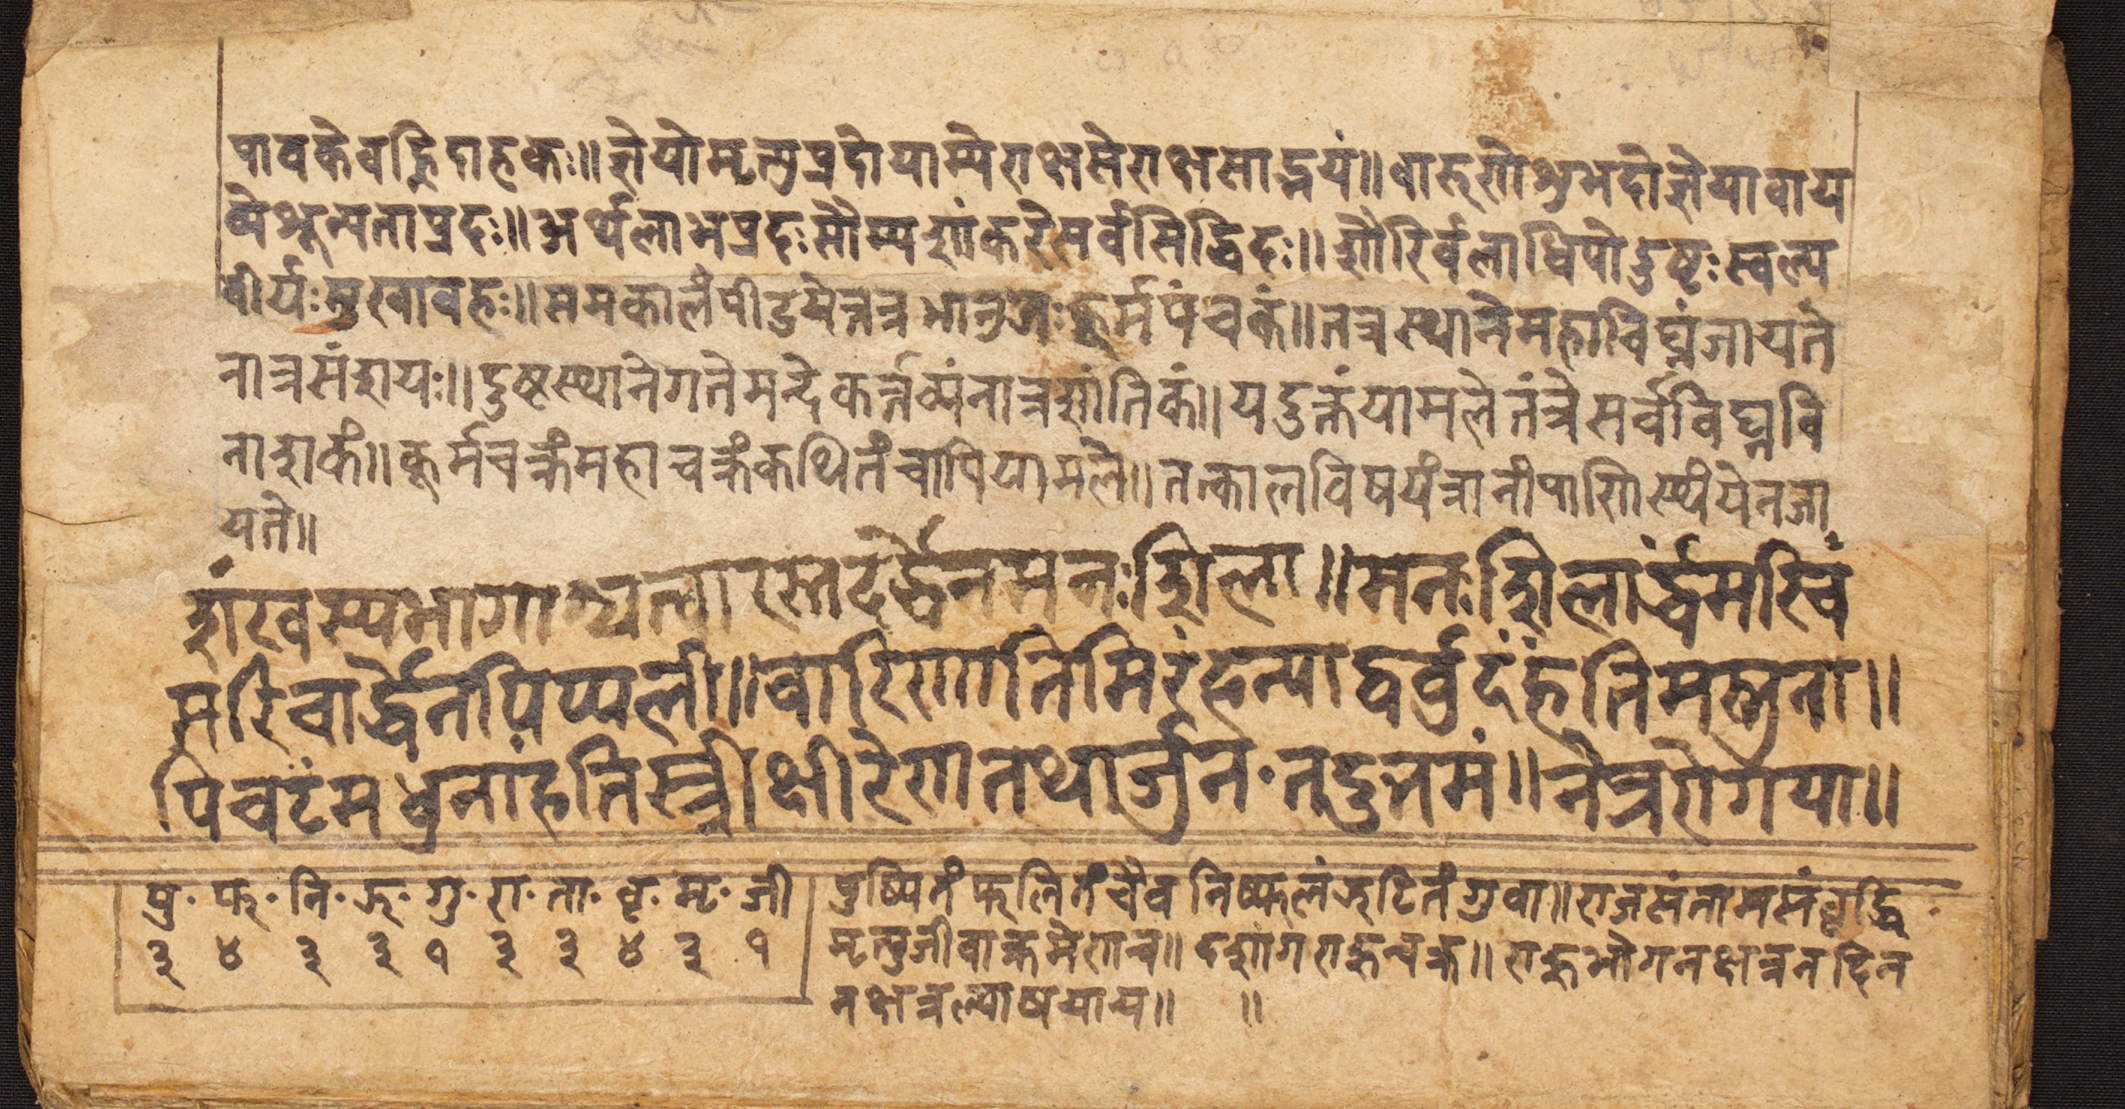 पावकेवह्निदाहकः॥ ज्ञेयोमृत्युप्रदोयाम्येराक्षसेराक्षसाद्भयं॥ वारुणेशुभदोज्ञेयावाय
व्येशून्यताप्रदः॥ अर्थलाभप्रदःसौम्यशांकरेसर्वसिद्धिदः॥ शौरिर्वलाधिपोदुष्टःस्वल्प
वीर्यःसुखावहः॥ समकालंपीडयेत्तत्रभानुजःकूर्मपंचकं॥ तत्रस्थानेमहाविघ्नंजायते
नात्रसंशयः॥ दुष्टस्थानेगतेमन्देकर्त्तव्यंनात्रशांतिकं॥ यदुक्तंयामलेतंत्रेसर्वविघ्नवि
नाशकं॥ कूर्मचक्रंमहाचक्रंकथितंचापियामले॥ तत्कालविषयंज्ञानंपाणिस्थंयेनजा
यते॥
शंखस्यभागाश्चत्वारस्तदर्द्धेनमनःशिला॥ मनःशिलार्द्धंमरिचं
मरिचार्द्धेनपिप्पली॥ वारिणातिमिरंहन्यादर्वुदंहंतिमस्तुना॥
पिचटंमधुनांहंतिस्त्रीक्षीरेणतथार्जुन॰तदुत्तमं॥ नेत्ररोगया॥
पु॰ फ॰ नि॰ झ॰ गु॰ रा॰ ता॰ वृ॰ मृ॰ जी
३ ४ ३ ३ १ ३ ३ ४ ३ १
पुष्पितंफलितंचैवनिष्फलंझटितंगुवा॥ राजसंतामसंवृद्धि
मृत्युजीवाक्रमेणच॥ दशांगराहुचक्र॥ राहुभोगनक्षत्रनदिन
नक्षत्र